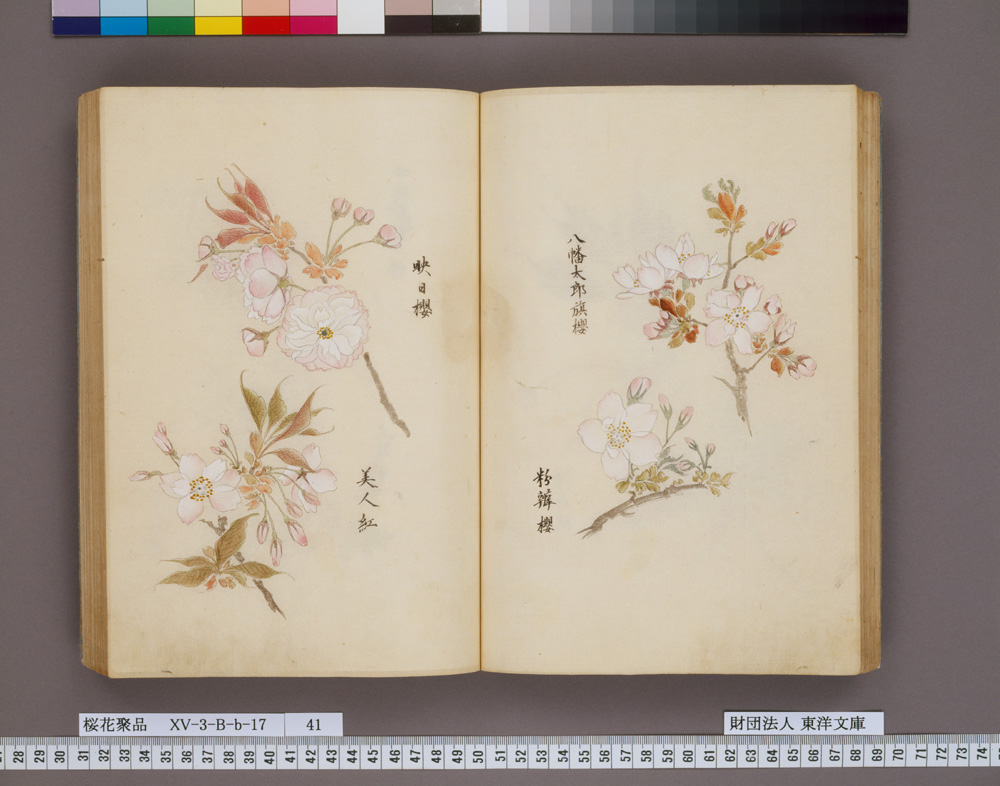 八幡太郎旗櫻
粉辧櫻
映日櫻
美人紅
桜花聚品 XV-3-B-b-17 41
財団法人 東洋文庫
28 29 30 31 32 33 34 35 36 37 38 39 40 41 42 43 44 45 46 47 48 49 50 51 52 53 54 55 56 57 58 59 60 61 62 63 64 65 66 67 68 69 70 71 72 73 74